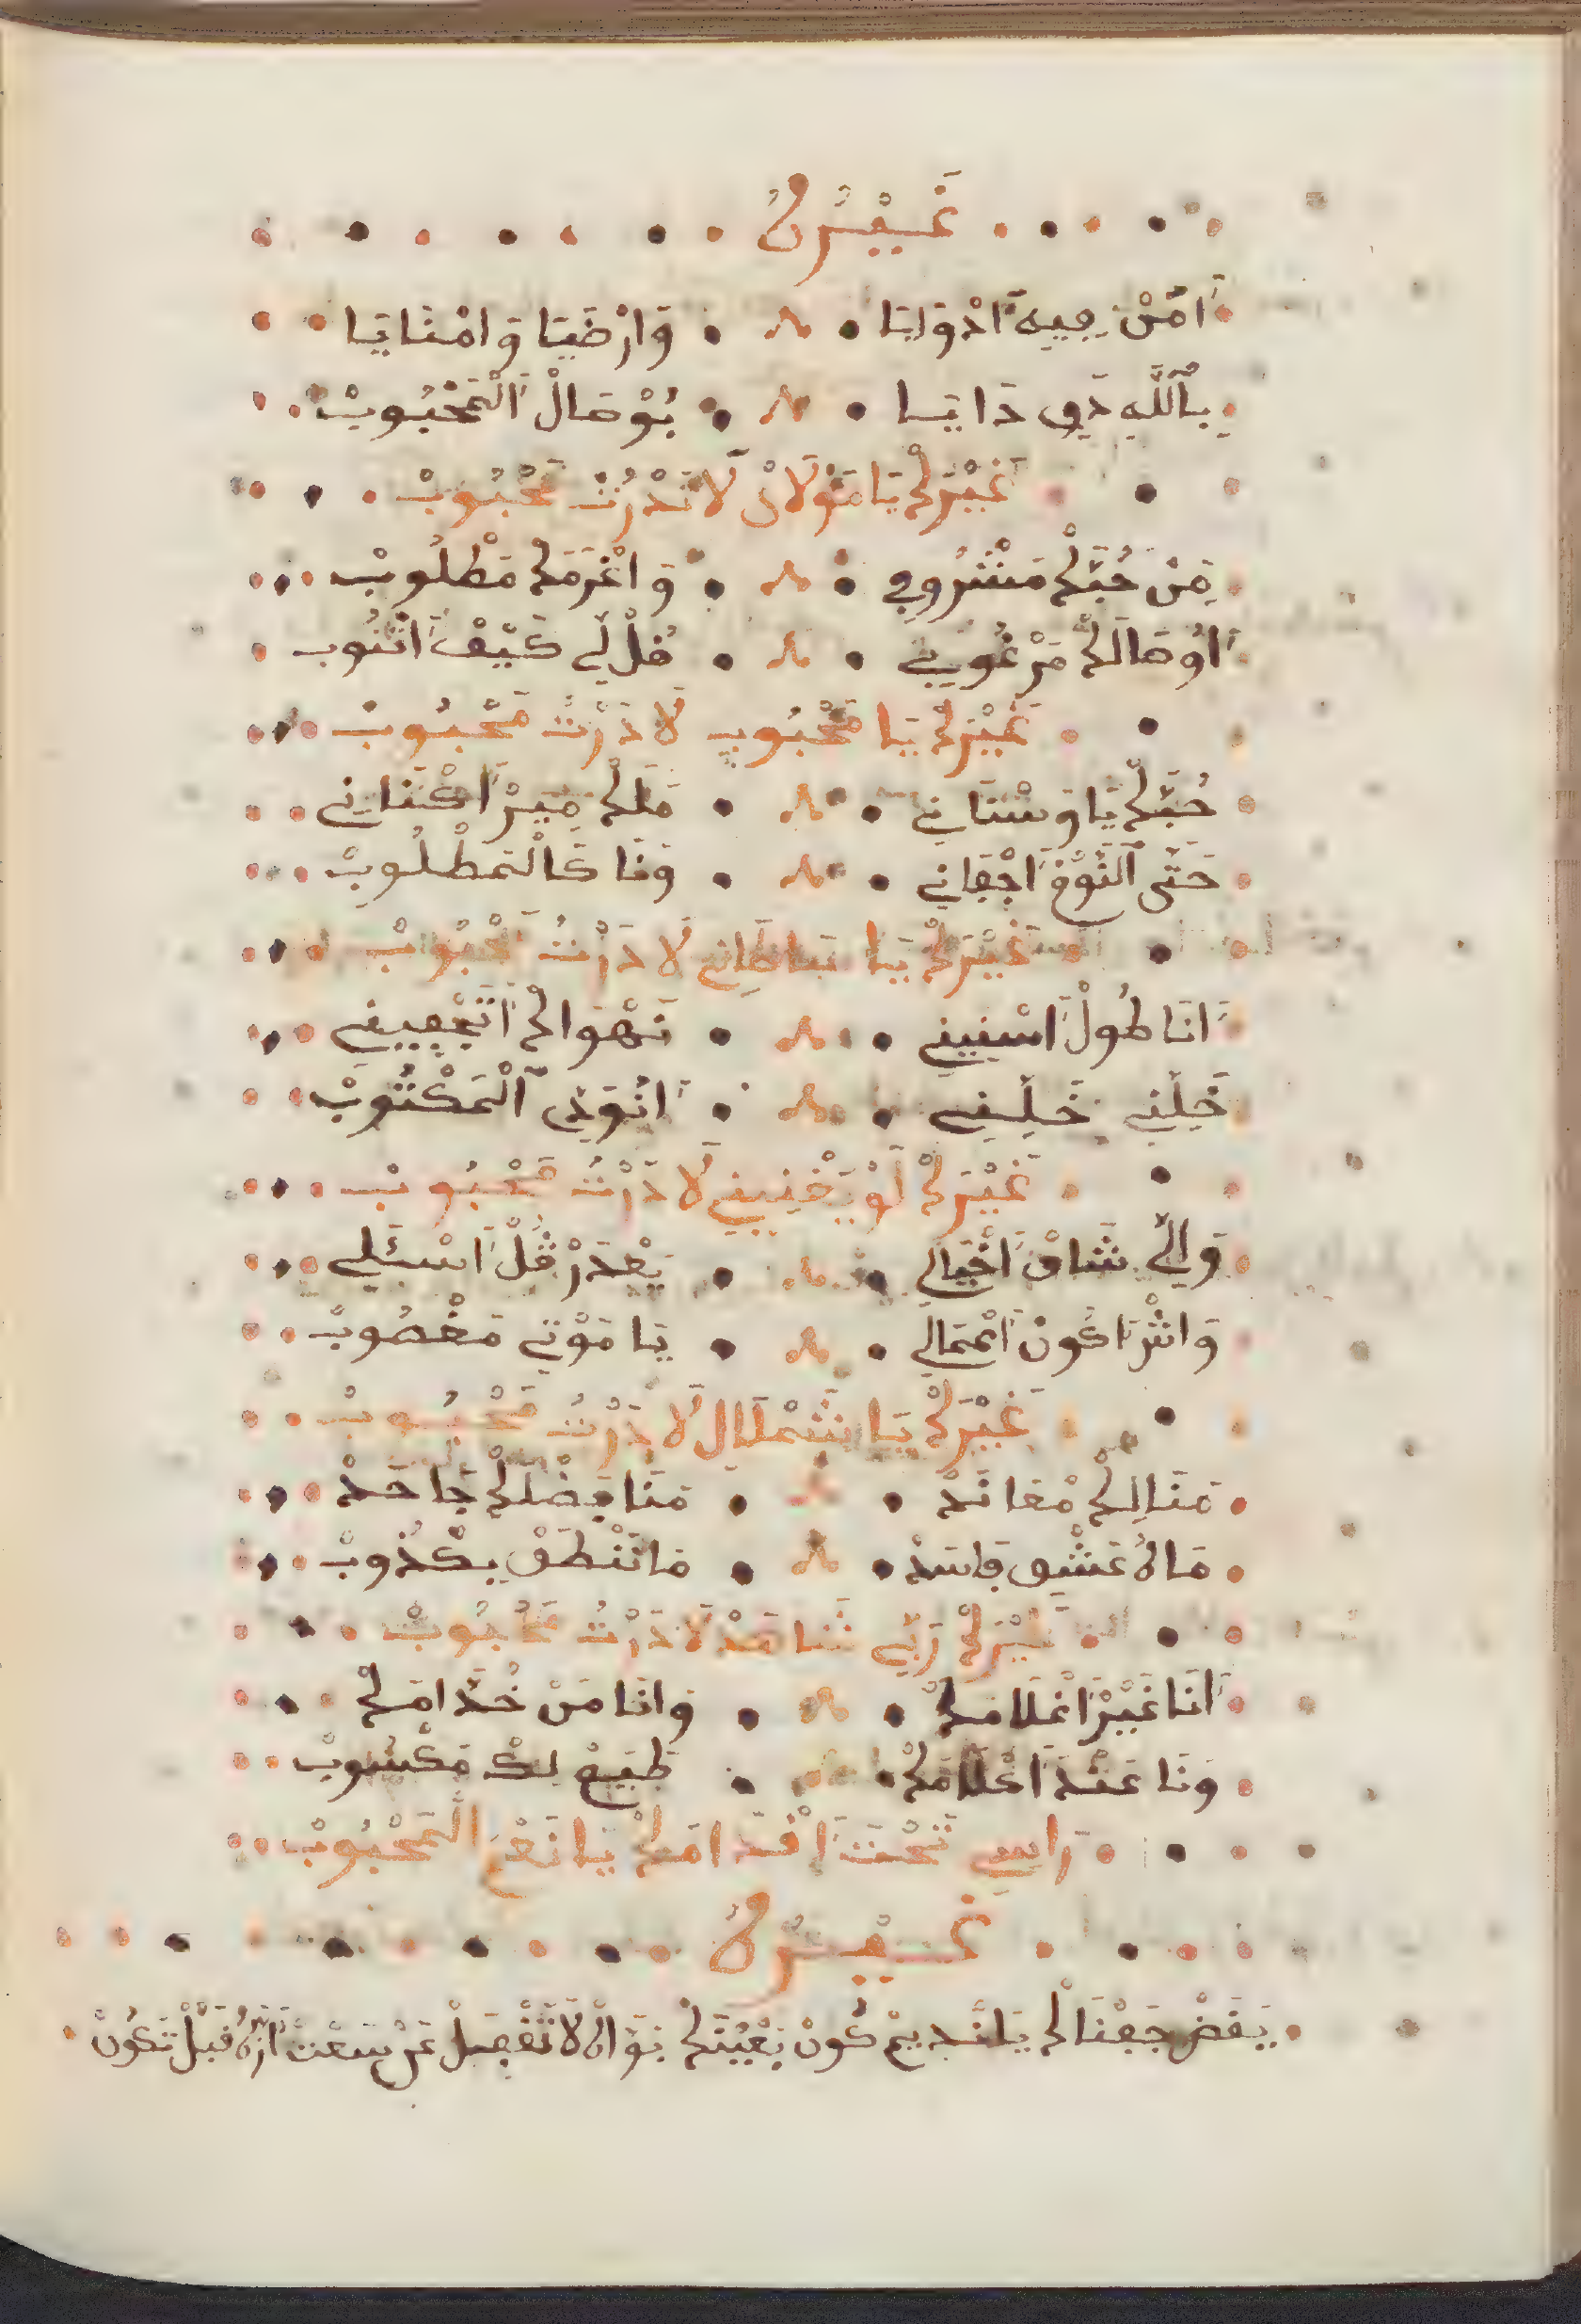 غَيْرُهُ
اَمَّنْ بِيهِ اَدْوَايَا وَارْضَيَا وَامْنَايَا
بِاللَّهِ دَوِي دَايَا بُوْصَالْ اَلْمَحْبُوبْ
غَيْرَكْ يَا مَوْلَايْ لَا نَدْرْتْ مَحْبُوبْ
مِنْ حُبَّكْ مَشْرُوبِي وَاغْرَمَكْ مَطْلُوبْ
اَوُصَالَكْ مَرْغُوبِي قُلْ لِي كَيْفْ اَنْتُوبْ
غَيْرَكْ يَا مَحْبُوبِي لَا دَرْتْ مَحْبُوبْ
حُبَّكْ يَا وَسْنَانِي مَلَكْ مِيرْ اَكْنَانِي
حَتَّى اَلنَّوْمْ اَجْفَانِي وَنَا كَالْمَطْلُوبْ
غَيْرَكْ يَا بَاطَانِي لَا دَرْتُ مَحْبُوبْ
اَنَا طُولْ اَسْنِينِي نَهْوَاكْ اَتَجْفِينِي
خَلِّنِي خَلِّينِي اَنُوَدِّي اَلْمَكْتُوبْ
غَيْرَكْ لَوْ يَخْنِينِي لَا دَرْتُ مَحْبُوبْ
وَالِّي شَافْ اَخْيَالِي يَعْدَرْ قُلْ اَسْبَئَلِي
وَاشْ تَاكُونْ اَعْمَالِي يَا مَوْتِي مَغْصُوبْ
غَيْرَكْ يَا شَمْلَالِ لَا دَرْتُ مَحْبُوبْ
مَنَالِكْ مْعَانَدْ مَنَا بَضْلَكْ جَاحَدْ
مَالُ عَشْقِي فَاسَدْ مَانَنْطَقْ بِكْذُوبْ
غَيْرَكْ رَبِّي شَاهَدْ لَا دَرْتُ مَحْبُوبْ
اَنَا غَيْرْ اَغْلَامَكْ وَانَا مَنْ خُدَّامَكْ
وَنَا عَنْدَ اَعْلَامَكْ طَبِيعْ لِكْ مَكْسُوبْ
رَاسِي تَحْتَ اَقْدَامَكْ يَا نَعْمَ اَلْمَحْبُوبْ
غَيْرُهُ
يَفَضْ جَفْنَاكْ يَا نَدِيمْ كُونْ بَعْيُنَكْ لَا تَغْفَلْ عَنْ سَعْتْ قَبْلْ تَكُونْ